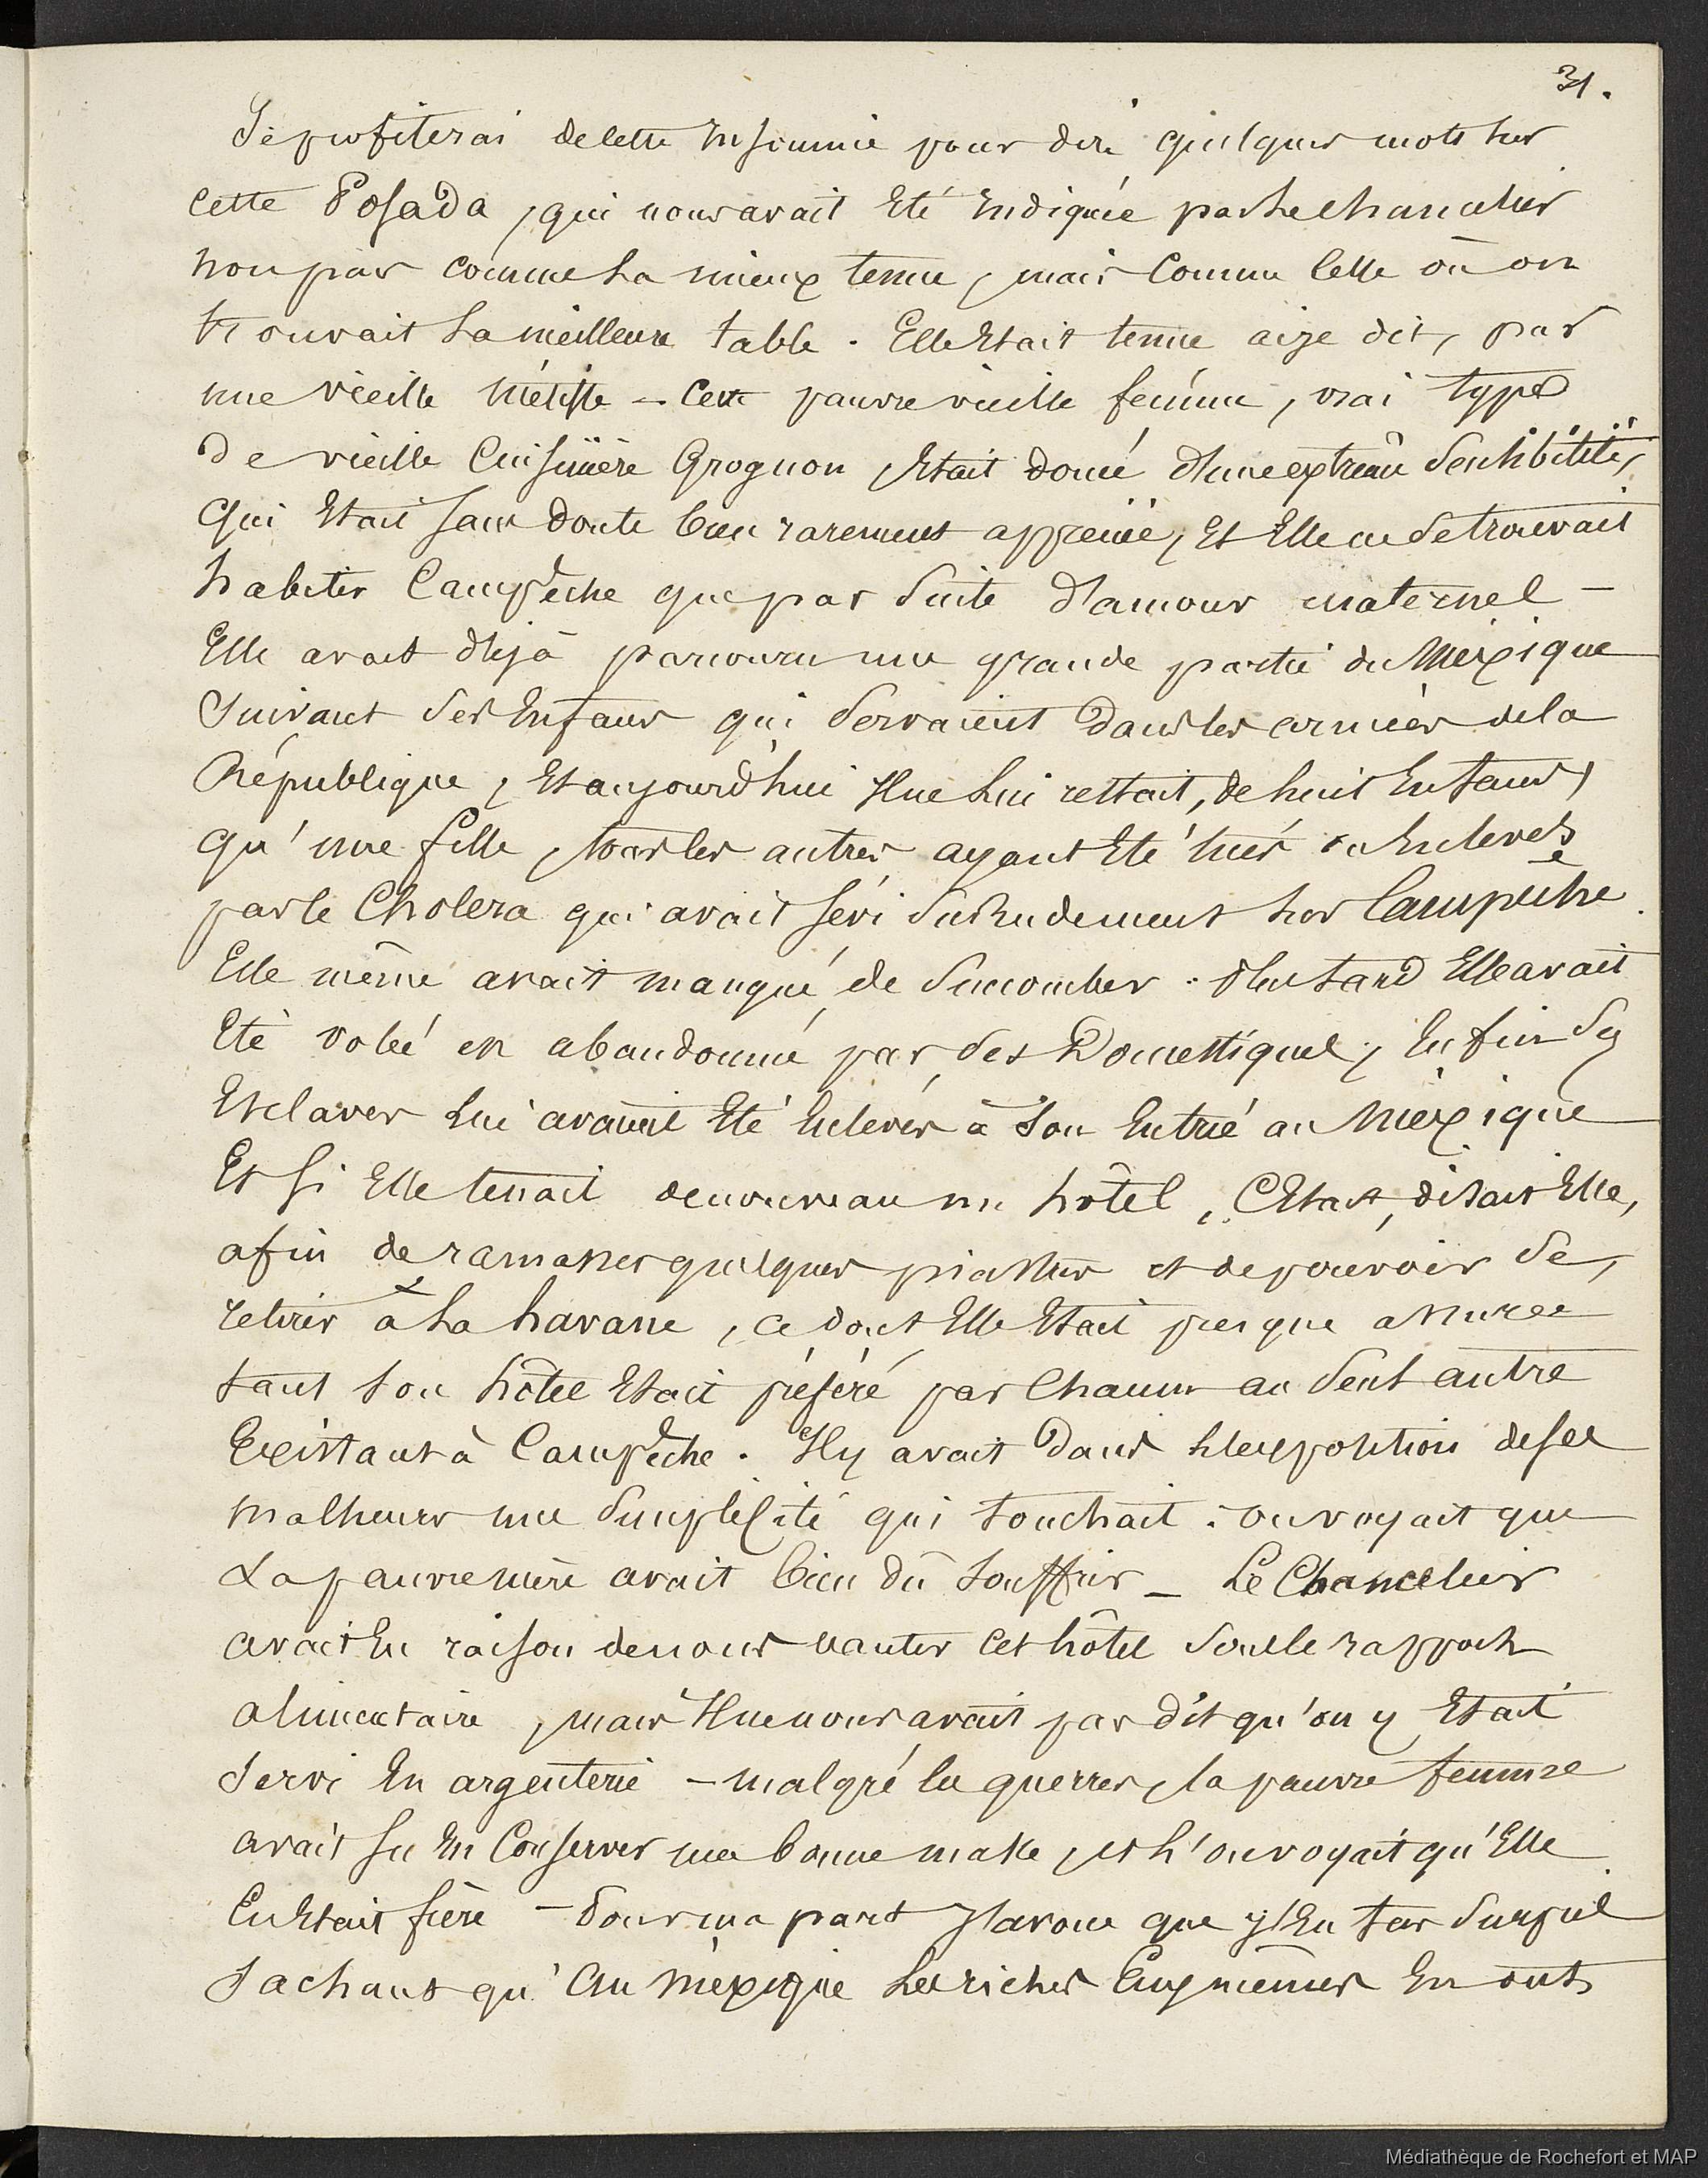 31.
Je profiterai de cette Insomnie pour dire quelques mots sur
cette Posada, qui nous avait Eté Indiquée par le Chancelier
non pas comme la mieux tenue, mais Comme Celle où on
trouvait la meilleure table. Elle Etait tenue ai je dit, par
une vieille métisse – Cette pauvre vieille femme, vrai type
de vieille Cuisinière Grognon, Etait doué d'une extrême Sensibilité,
Qui Etait sans doute bien rarement appréciée, Et Elle ne Se trouvait
habiter Campêche que par Suite d'amour maternel –
Elle avait déjà parcouru une grande partie du Mexique
Suivant Ses Enfans qui Servaient Dans les armées de la
République, Et aujourd'hui Il ne lui restait, de huit Enfans,
qu'une fille, tous les autres ayant Eté tués ou Enlevés
par le Choléra qui avait sévi Si Rudement sur Campêche.
Elle même avait manqué de Succomber. Plus tard Elle avait
Eté volée en abandonné par Ses Domestiques, Enfin Ses
Esclaves lui avaient Eté Enlevés à Son Entrée au Mexique
Et Si Elle tenait de nouveau un hôtel, C'Etait, disait Elle,
afin de ramasser quelques piastres et de pouvoir Se,
retirer à la havane, ce dont Elle Etait presque assurée
tant Son hôtel Etait préféré par Chacun au Seul autre
Existant à Campêche. Il y avait Dans l'exposition de ses
malheurs une Simplicité qui touchait : on voyait que
La pauvre mère avait bien dû Souffrir – Le Chancelier
avait Eu raison de nous vanter cet hôtel Sous le rapport
alimentaire, mais Il ne nous avait pas dit qu'on y Etait
Servi En argenterie – malgré les guerres, la pauvre femme
avait su En Conserver une bonne masse, et l'on voyait qu'Elle
En Etait fière – Pour ma part J'avoue que j'En fus Surpris
Sachant qu'Au Mexique les riches Eux mêmes En ont
Médiathèque de Rochefort et MAP